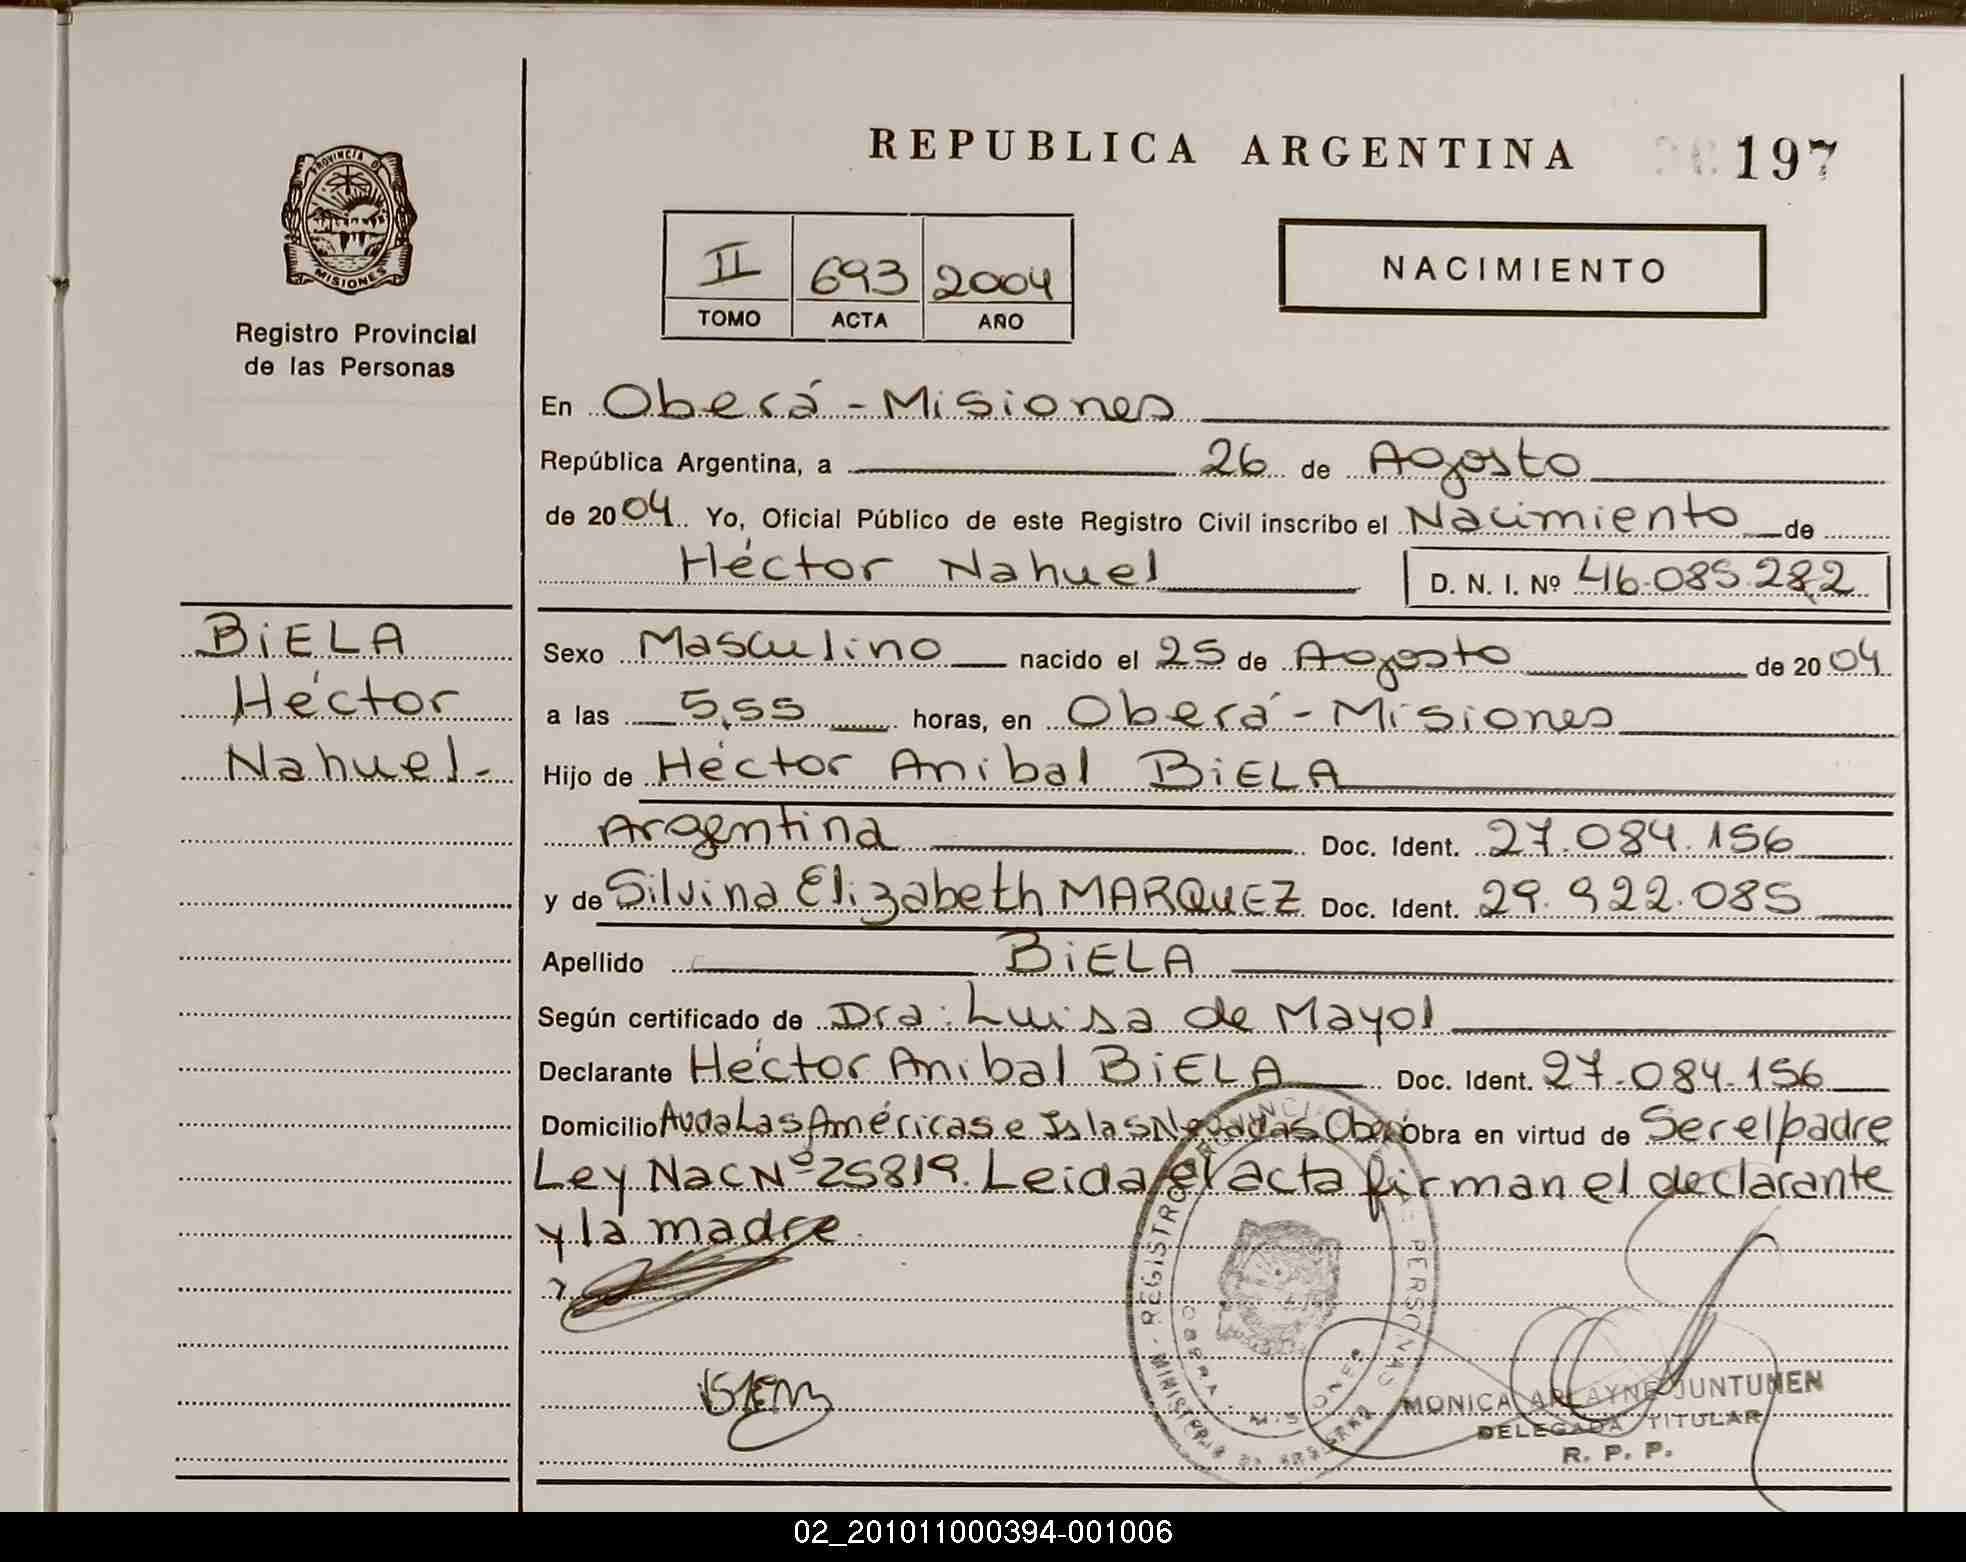 REPUBLICA ARGENTINA
197
PROVINCIA DE
MISIONES
Registro Provincial
de las Personas
II 693 2004
TOMO ACTA AÑO
NACIMIENTO
En Oberá - Misiones
República Argentina, a 26 de Agosto
de 2004. Yo, Oficial Público de este Registro Civil inscribo el Nacimiento de
Héctor Nahuel D. N. I. Nº 46.085.282
BiELA
Héctor
Nahuel.-
Sexo Masculino nacido el 25 de Agosto de 2004
a las 5,55 horas, en Oberá - Misiones
Hijo de Héctor Anibal BiELA
Argentina Doc. Ident. 27.084.156
y de Silvina Elizabeth MARQUEZ Doc. Ident. 29.922.085
Apellido BiELA
Según certificado de Dra: Luisa de Mayol
Declarante Héctor Anibal BiELA Doc. Ident. 27.084.156
Domicilio Avda Las Américas e Islas Obra en virtud de Ser el padre
Ley Nac Nº 25819. Leida el acta firman el declarante
y la madre.
REGISTRO PERSONAS
MONICA ARLAYNE JUNTUNEN
DELEGADA TITULAR
R. P. P.
02_201011000394-001006